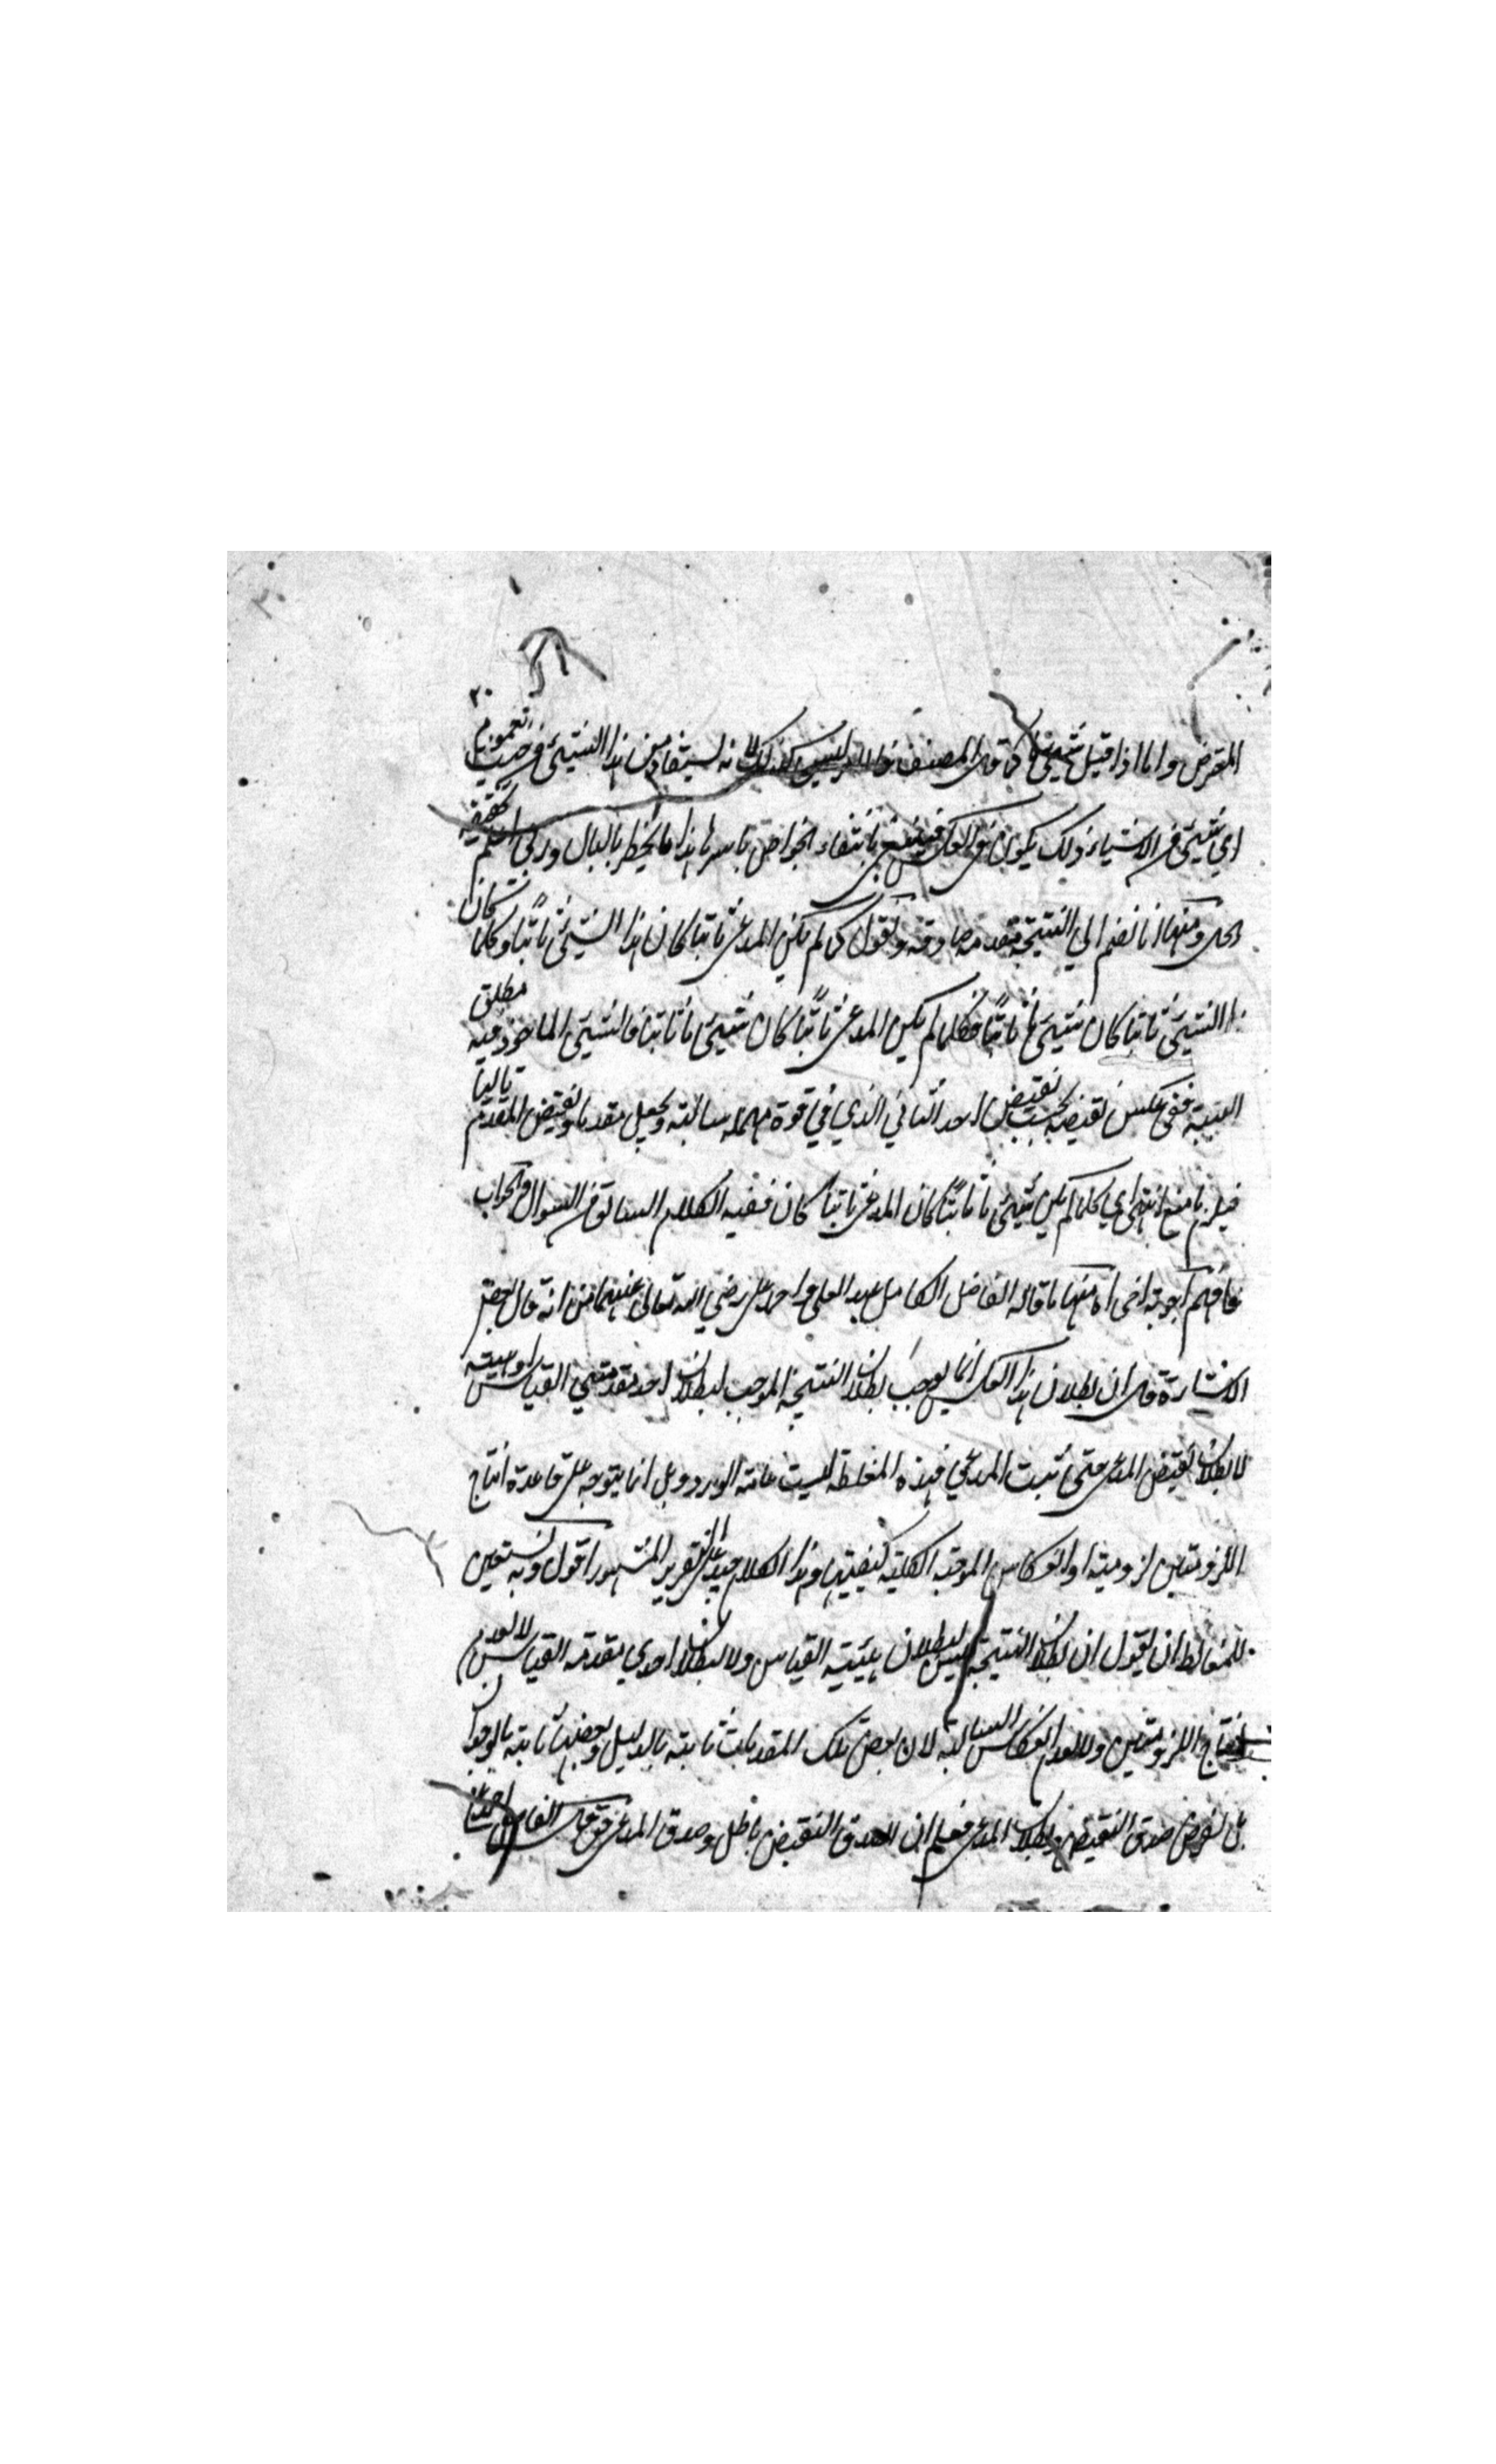 ٢٠
المقرض واما اذا قيل شيئ ما كما قال المصنف فالامر ليس كذلك لانه يستفاد من هذا الشيئ من حيث تعمومه
اي شيئ من الاشياء ذلك يكون في العكس بانتفاء الخواص باسرها هذا ما يخطر بالبال وربي اعلم بحقيقة
الحال ومنها انا نضم الي النتيجة مقدمة صادقة ونقول كلما لم يكن المدعى ثابتا كان هذا الشيئ ثابتا وكلما كان
هذا الشيئ ثابتا كان شيئ ما ثابتا فكلما لم يكن المدعى ثابتا كان شيئ ما ثابتا فالشيئ الماخوذ فيه مطلق
البتة ففي عكس نقيضه بحسب نقيض الحد الثاني الذي في قوة مهملة سالبة ويجعل مقدما ونقيض المقدم تاليا
فيلزم ما منع انتهى اي كلما لم يكن شيئ ما ثابتا كان المدعى ثابتا كان ففيه الكلام السابق من السوال والجواب
فافهم اجوبة اخرى منها ما قاله الفاضل الكامل عبد العلي احمد علي رضي الله تعالى عنهما من انه قال بعض
الاشارة قال ان بطلان هذا العكس انما يوجب بطلان النتيجة الموجب لبطلان احد مقدمتي القياس او هيئته
لا بطلان نقيض المدعى حتى ثبت المدعي فهذه المغلطة ليست عامة الورود بل انما يتوجه على قاعدة انتاج
اللزوميتين لزومية او انعكاس الموجبة الكلية كنفيتها وهذا الكلام جيد على التقرير المشهور اقول وبه نستعين
للمغالط ان يقول ان بطلان النتيجة ليس لبطلان هيئته القياس ولا لبطلان احدي مقدمة القياس لا لعدم
انتاج اللزوميتين ولا لعدم انعكاس السالبة لان بعض تلك المقدمات ثابتة بالدليل وبعضها ثابتة بالوجدان
بل لفرض صدق النقيض وبطلان المدعى فعلم ان صدق النقيض باطل وصدق المدعى حق قال الفاضل احمد علي